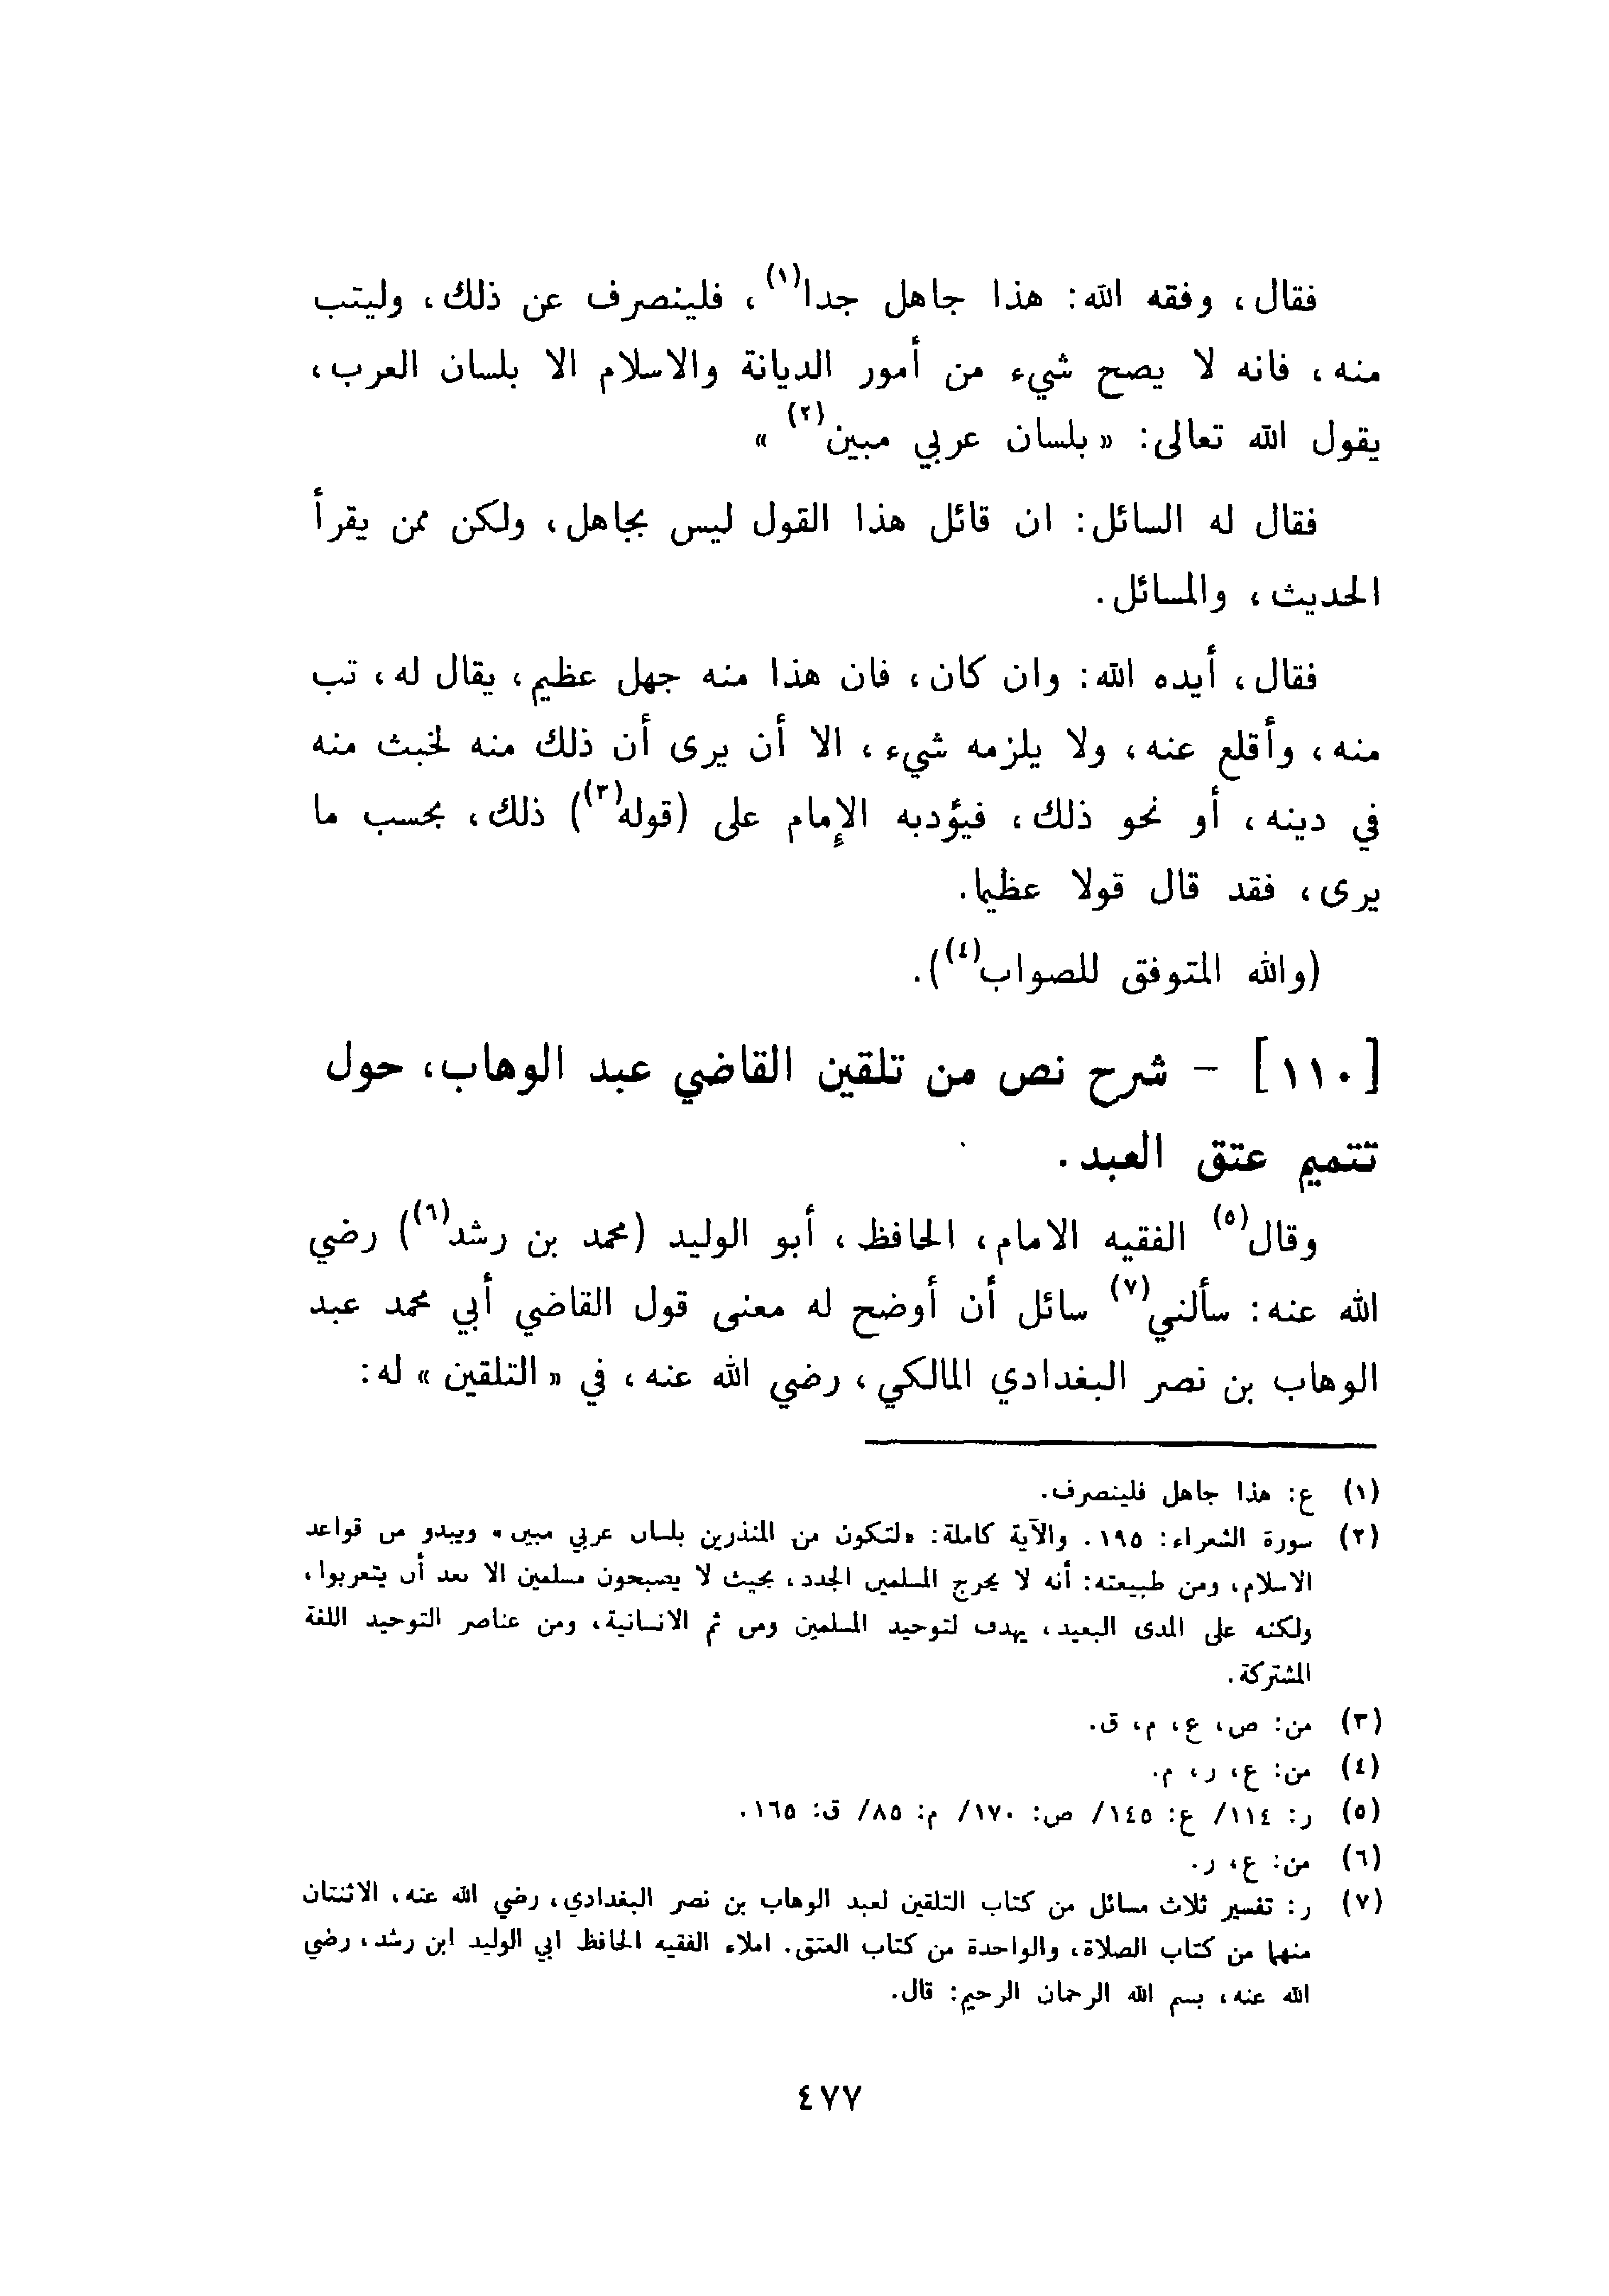 فقال، وفقه الله: هذا جاهل جدا(١)، فلينصرف عن ذلك، وليتب
منه، فانه لا يصح شيء من أمور الديانة والاسلام الا بلسان العرب،
يقول الله تعالى: «بلسان عربي مبين(٢)»
فقال له السائل: ان قائل هذا القول ليس بجاهل، ولكن ممن يقرأ
الحديث، والمسائل.
فقال، أيده الله: وان كان، فان هذا منه جهل عظيم، يقال له، تب
منه، وأقلع عنه، ولا يلزمه شيء، الا أن يرى أن ذلك منه لخبث منه
في دينه، أو نحو ذلك، فيؤدبه الإمام على (قوله(٣)) ذلك، بحسب ما
يرى، فقد قال قولا عظيما.
(والله المتوفق للصواب(٤)).
[١١٠] - شرح نص من تلقين القاضي عبد الوهاب، حول
تتميم عتق العبد.
وقال(٥) الفقيه الامام، الحافظ، أبو الوليد (محمد بن رشد(٦)) رضي
الله عنه: سألني(٧) سائل أن أوضح له معنى قول القاضي أبي محمد عبد
الوهاب بن نصر البغدادي المالكي، رضي الله عنه، في «التلقين» له:
(١) ع: هذا جاهل فلينصرف.
(٢) سورة الشعراء: ١٩٥. والآية كاملة: «لتكون من المنذرين بلسان عربي مبين» ويبدو من قواعد
الاسلام، ومن طبيعته: أنه لا يحرج المسلمين الجدد، بحيث لا يصبحون مسلمين الا بعد أن يتعربوا،
ولكنه على المدى البعيد، يهدف لتوحيد المسلمين ومن ثم الانسانية، ومن عناصر التوحيد اللغة
المشتركة.
(٣) من: ص، ع، م، ق.
(٤) من: ع، ر، م.
(٥) ر: ١١٤/ ع: ١٤٥/ ص: ١٧٠/ م: ٨٥/ ق: ١٦٥.
(٦) من: ع، ر.
(٧) ر: تفسير ثلاث مسائل من كتاب التلقين لعبد الوهاب بن نصر البغدادي، رضي الله عنه، الاثنتان
منهما من كتاب الصلاة، والواحدة من كتاب العتق. املاء الفقيه الحافظ ابي الوليد ابن رشد، رضي
الله عنه، بسم الله الرحمان الرحيم: قال.
٤٧٧